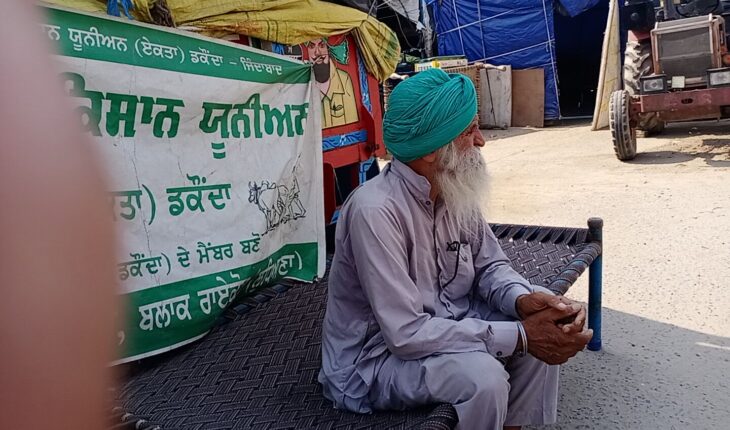 ਕਿਸਾਨ ਯੂਨੀਅਨ (ਏਕਤਾ) ਡਕੌਂਦਾ - ਜਿੰਦਾਬਾਦ
ਕਿਸਾਨ ਯੂਨੀਅਨ
ਡਕੌਂਦਾ
ਦੇ ਮੈਂਬਰ ਬਣੋ
ਬਲਾਕ ਰਾਏਕੋਟ